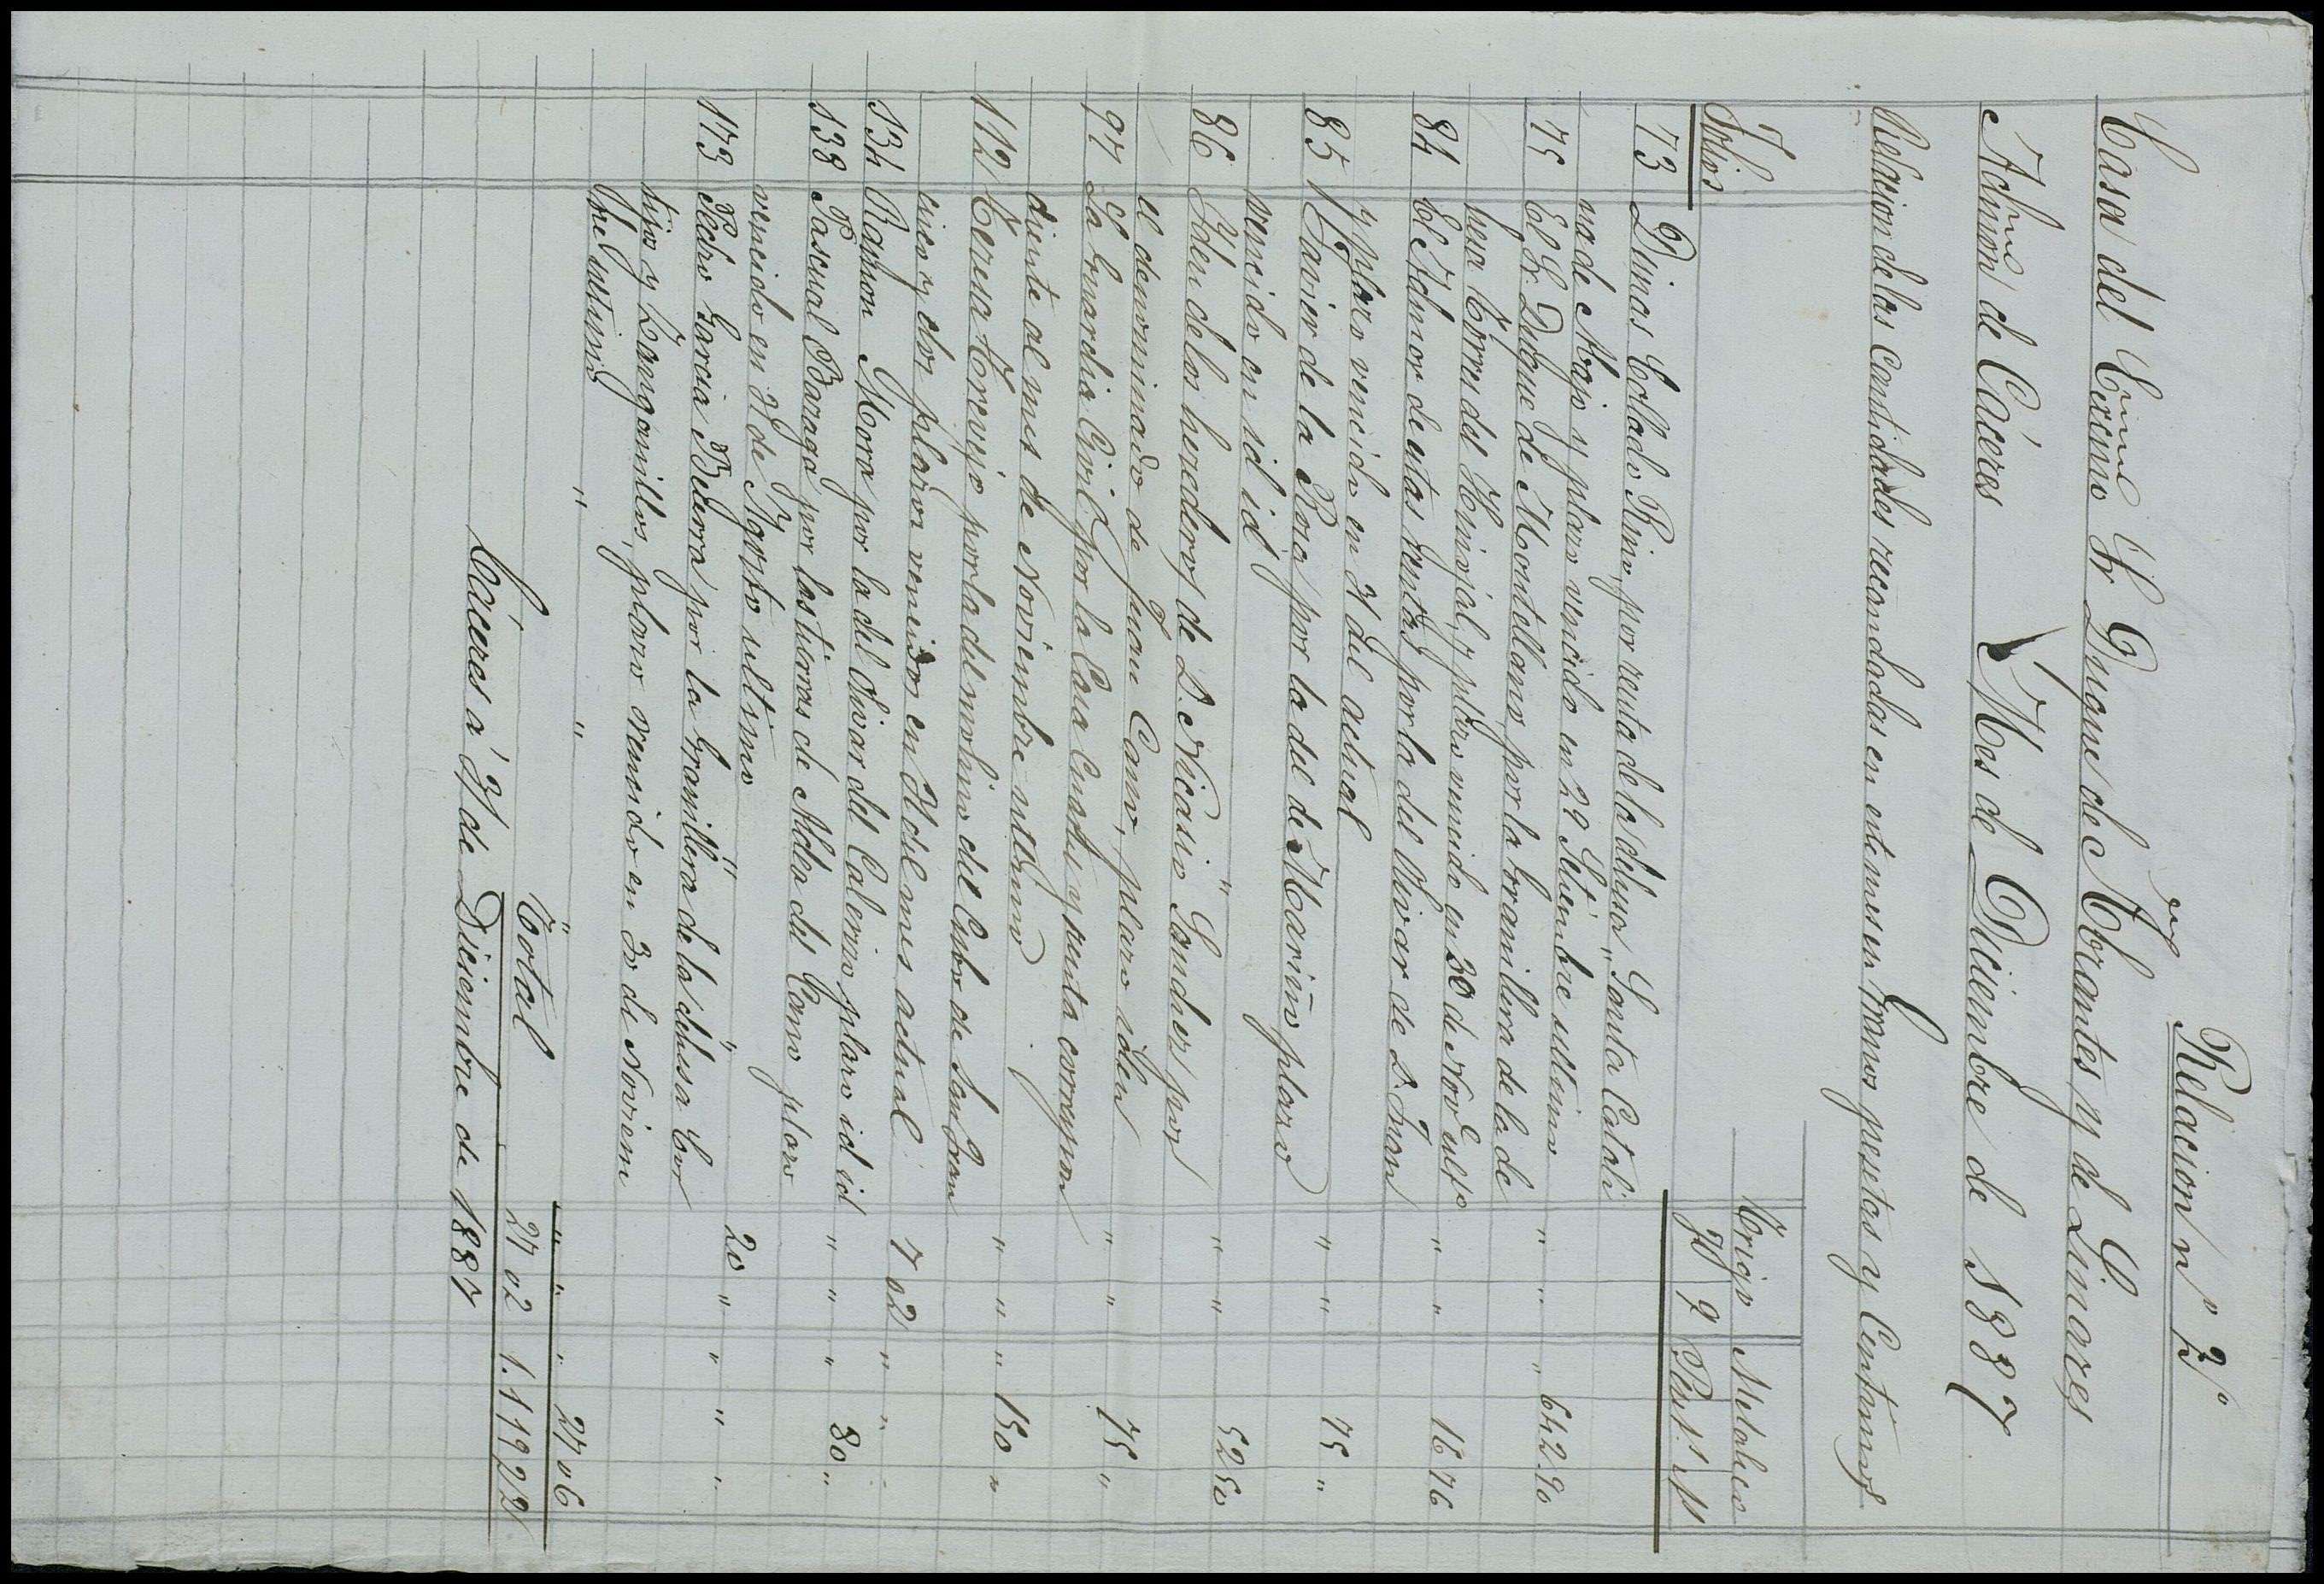 Relacion nº 3º
Casa del Exmo Sr Duque de Abrantes y de Linares
Admon de Cáceres Mes de Diciembre de 1887
Relacion de las Cantidades recaudadas en este mes en granos pesetas y Centimos
Trigo Metalico
Folios
73 Dimas Collado Pino, por renta de la dehesa, Santa Catali
na de Abajo y plazo vencido en 29 Setiembre ultimo " " " 642.90
75 El Sr. Duque de Montellano por la Granillera de la de
hesa Torre del Hinojal, y plazo vencido en 30 de Novе ulto " " 16 76
84 El Admor de estas rentas por la del Olivar de D. Juan
y plazo vencido en 31 del actual
85 Javier de la Rosa por la del de Mariño plazo " " 75 "
vencido en id id
86 Iden de los herederos de D. Nicasio Sanchez por " " 52 50
el denominado de Juan Cano, plazo iden
97 La Guardia Civil por la Casa Cuartel y renta correspon " " 75 "
diente al mes de Noviembre ultimo
112 Teresa Trevejo por la del molino del Cubo de San Fran " " " 150 "
cisco y dos plazos vencidos en 31 del mes actual 7 02 " " "
134 Ramon Mora por la del Olivar del Calerizo plazo id id " " " 80 "
138 Pascual Baraga por las tierras de Aldea del Cano plazo
vencido en 31 de Agosto ultimo " " 20 " " " "
173 Pedro Garcia Becerra por la Granillera de la dehesa Cor
tijo y Zamgamillos, plazo vencido en 30 de Noviem
bre ultimo " " " " " " 27 06
Total 27 02 1.119 22
Cáceres á 31 de Diciembre de 1887